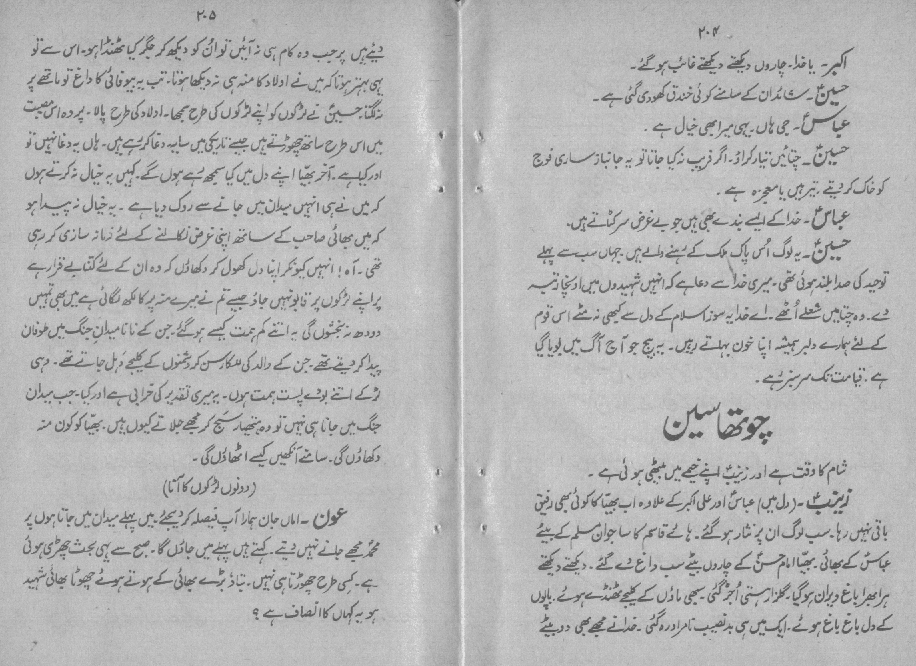 ۲۰۴
اکبر۔ یا خدا۔ چاروں دیکھتے دیکھتے غائب ہو گئے۔
حسینؑ۔ شاید ان کے سامنے کوئی خندق کھودی گئی ہے۔
عباسؑ۔ جی ہاں۔ یہی میرا بھی خیال ہے۔
حسینؑ۔ چتائیں تیار کراؤ۔ اگر فریب نہ کیا جاتا تو یہ جانباز ساری فوج
کو خاک کر دیتے۔ تیر ہیں یا معجزہ ہے۔
عباسؑ۔ خدا کے ایسے بندے بھی ہیں جو بے غرض سر کٹاتے ہیں۔
حسینؑ۔ یہ لوگ اُس پاک ملک کے رہنے والے ہیں۔ جہاں سب سے پہلے
توحید کی صدا بلند ہوئی تھی۔ میری خدا سے دعا ہے کہ انہیں شہیدوں میں اونچا رتبہ
دے۔ وہ چتا میں شعلے اُٹھے۔ اے خدا یہ سوز اسلام کے دل سے کبھی نہ مٹے اس قوم
کے لئے ہمارے دلیر ہمیشہ اپنا خون بہاتے رہیں۔ یہ بیج جو آج آگ میں بویا گیا
ہے۔ قیامت تک سرسبز رہے۔
چوتھا سین
شام کا وقت ہے اور زینبؑ اپنے خیمے میں بیٹھی ہوئی ہے۔
زینبؑ۔ (دل میں) عباسؑ اور علی اکبر کے علاوہ اب بھیّا کا کوئی بھی رفیق
باقی نہیں رہا۔ سب لوگ ان پر نثار ہو گئے۔ ہائے قاسم کا سا جوان مسلم کے بیٹے
عباسؑ کے بھائی۔ بھیّا امام حسنؑ کے چاروں بیٹے سب داغ دے گئے۔ دیکھتے دیکھتے
ہرا بھرا باغ ویران ہو گیا۔ گلزار ہستی اُجڑ گئی۔ سبھی ماؤں کے کلیجے ٹھنڈے ہوئے۔ باپوں
کے دل باغ باغ ہوئے۔ ایک میں ہی بدنصیب نامراد رہ گئی۔ خدا نے مجھے بھی دو بیٹے
۲۰۵
دیئے ہیں پر جب وہ کام ہی نہ آئیں تو اُن کو دیکھ کر جگر کیا ٹھنڈا ہو۔ اس سے تو
یہی بہتر ہوتا کہ میں نے اولاد کا منہ ہی نہ دیکھا ہوتا۔ تب یہ بیوفائی کا داغ تو ماتھے پر
نہ لگتا۔ حسینؑ نے لڑکوں کو اپنے لڑکوں کی طرح سمجھا۔ اولاد کی طرح پالا۔ پر وہ اس مصیبت
میں اس طرح ساتھ چھوڑتے ہیں جیسے تاریکی میں سایہ۔ دغا کر رہے ہیں۔ ہاں یہ دغا نہیں تو
اور کیا ہے۔ آخر بھیّا اپنے دل میں کیا سمجھ رہے ہوں گے۔ کہیں یہ خیال نہ کرتے ہوں
کہ میں نے ہی انہیں میدان میں جانے سے روک دیا ہے۔ یہ خیال نہ پیدا ہو
کہ میں بھائی صاحب کے ساتھ اپنی غرض نکالنے کے لئے زمانہ سازی کر رہی
تھی۔ آہ! انہیں کیونکر اپنا دل کھول کر دکھاؤں کہ وہ ان کے لئے کتنا بے قرار ہے
پر اپنے لڑکوں پر قابو نہیں جاؤ جیسے تم نے میرے منہ پر کالکھ لگائی ہے میں بھی تمہیں
دودھ نہ بخشوں گی یہ اتنے کم ہمت کیسے ہو گئے۔ جن کے نانا میدانِ جنگ میں طوفان
پیدا کر دیتے تھے جن کے والد کی للکار سن کر دشمنوں کے کلیجے دہل جاتے تھے۔ وہی
لڑکے اتنے بودے پست ہمت ہوں۔ یہ میری تقدیر کی خرابی ہے اور کیا۔ جب میدان
جنگ میں جانا ہی نہیں تو وہ ہتھیار سج کر مجھے جلاتے کیوں ہیں۔ بھیّا کو کون منہ
دکھاؤں گی۔ سامنے آنکھیں کیسے اٹھاؤں گی۔
(دونوں لڑکوں کا آنا)
عون۔ اماں جان ہمارا آپ فیصلہ کر دیجئے میں پہلے میدان میں جاتا ہوں پر
محمدؐ مجھے جانے نہیں دیتے۔ کہتے ہیں پہلے میں جاؤں گا۔ صبح سے یہی بحث چھڑی ہوئی
ہے۔ کسی طرح چھوڑتا ہی نہیں۔ بتاؤ بڑے بھائی کے ہوتے ہوئے چھوٹا بھائی شہید
ہو یہ کہاں کا انصاف ہے؟